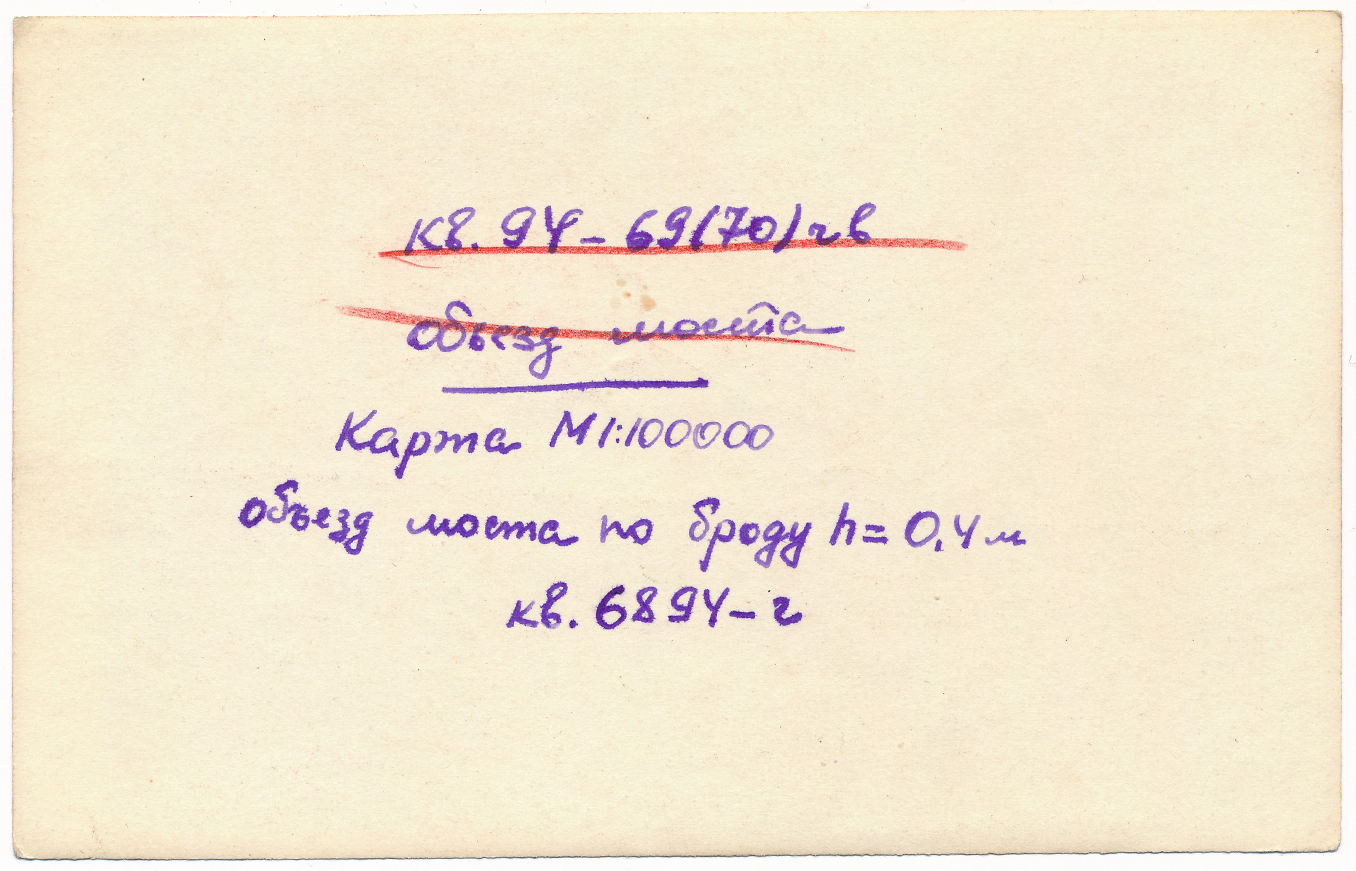 кв. 94 - 69(70) г в
объезд моста
Карта М 1:100000
объезд моста по броду h = 0,4 м
кв. 6894 - г